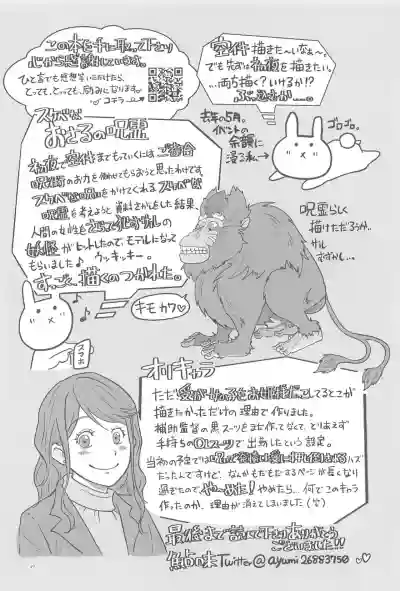 この本を手に取って下さり
心から感謝しています。
ひと言でも感想いただけたら、
とっても、とっても、励みになります。
↓コチラ
空件描きた〜いなぁ〜。
でも先ずは初夜を描きたい。
…両ち描く?いけるか!?
去年の5月。
イベントの
余韻に
浸る私→
ゴロゴロ。
スケベな
おさるの呪霊
初夜で空件までもっていくには、ご都合
呪術のお力を働かせてもらおうと思ったわけです。
スケベな呪いをかけてくれるスケベな
呪霊を考えようと資料さがしをした結果、
人間の女性をさらって化かすサルの
妖怪がヒットしたので、モデルになって
もらいました♪ウッキッキー。
すっごく、描くのつかれた。
呪霊らしく
描けただろうか…
サル
むずかし…
キモカワ♡
スマホ
オリキャラ
ただ
描きたかっただけの理由で作りました。
補助監督の黒スーツをまだ作ってなくて、とりあえず
手持ちのOLスーツで出勤したという設定。
当初の予定では
ハズ
だったんですけど、なんかもだもだするページが長くなり
過ぎたので、や〜めた!やめたら…何でこのキャラ
作ったのか、理由が消えてしまいました(笑)
最後まで読んで下さりありがとう
ございました!!
鮎の味 Twitter@ayumi26883750♡